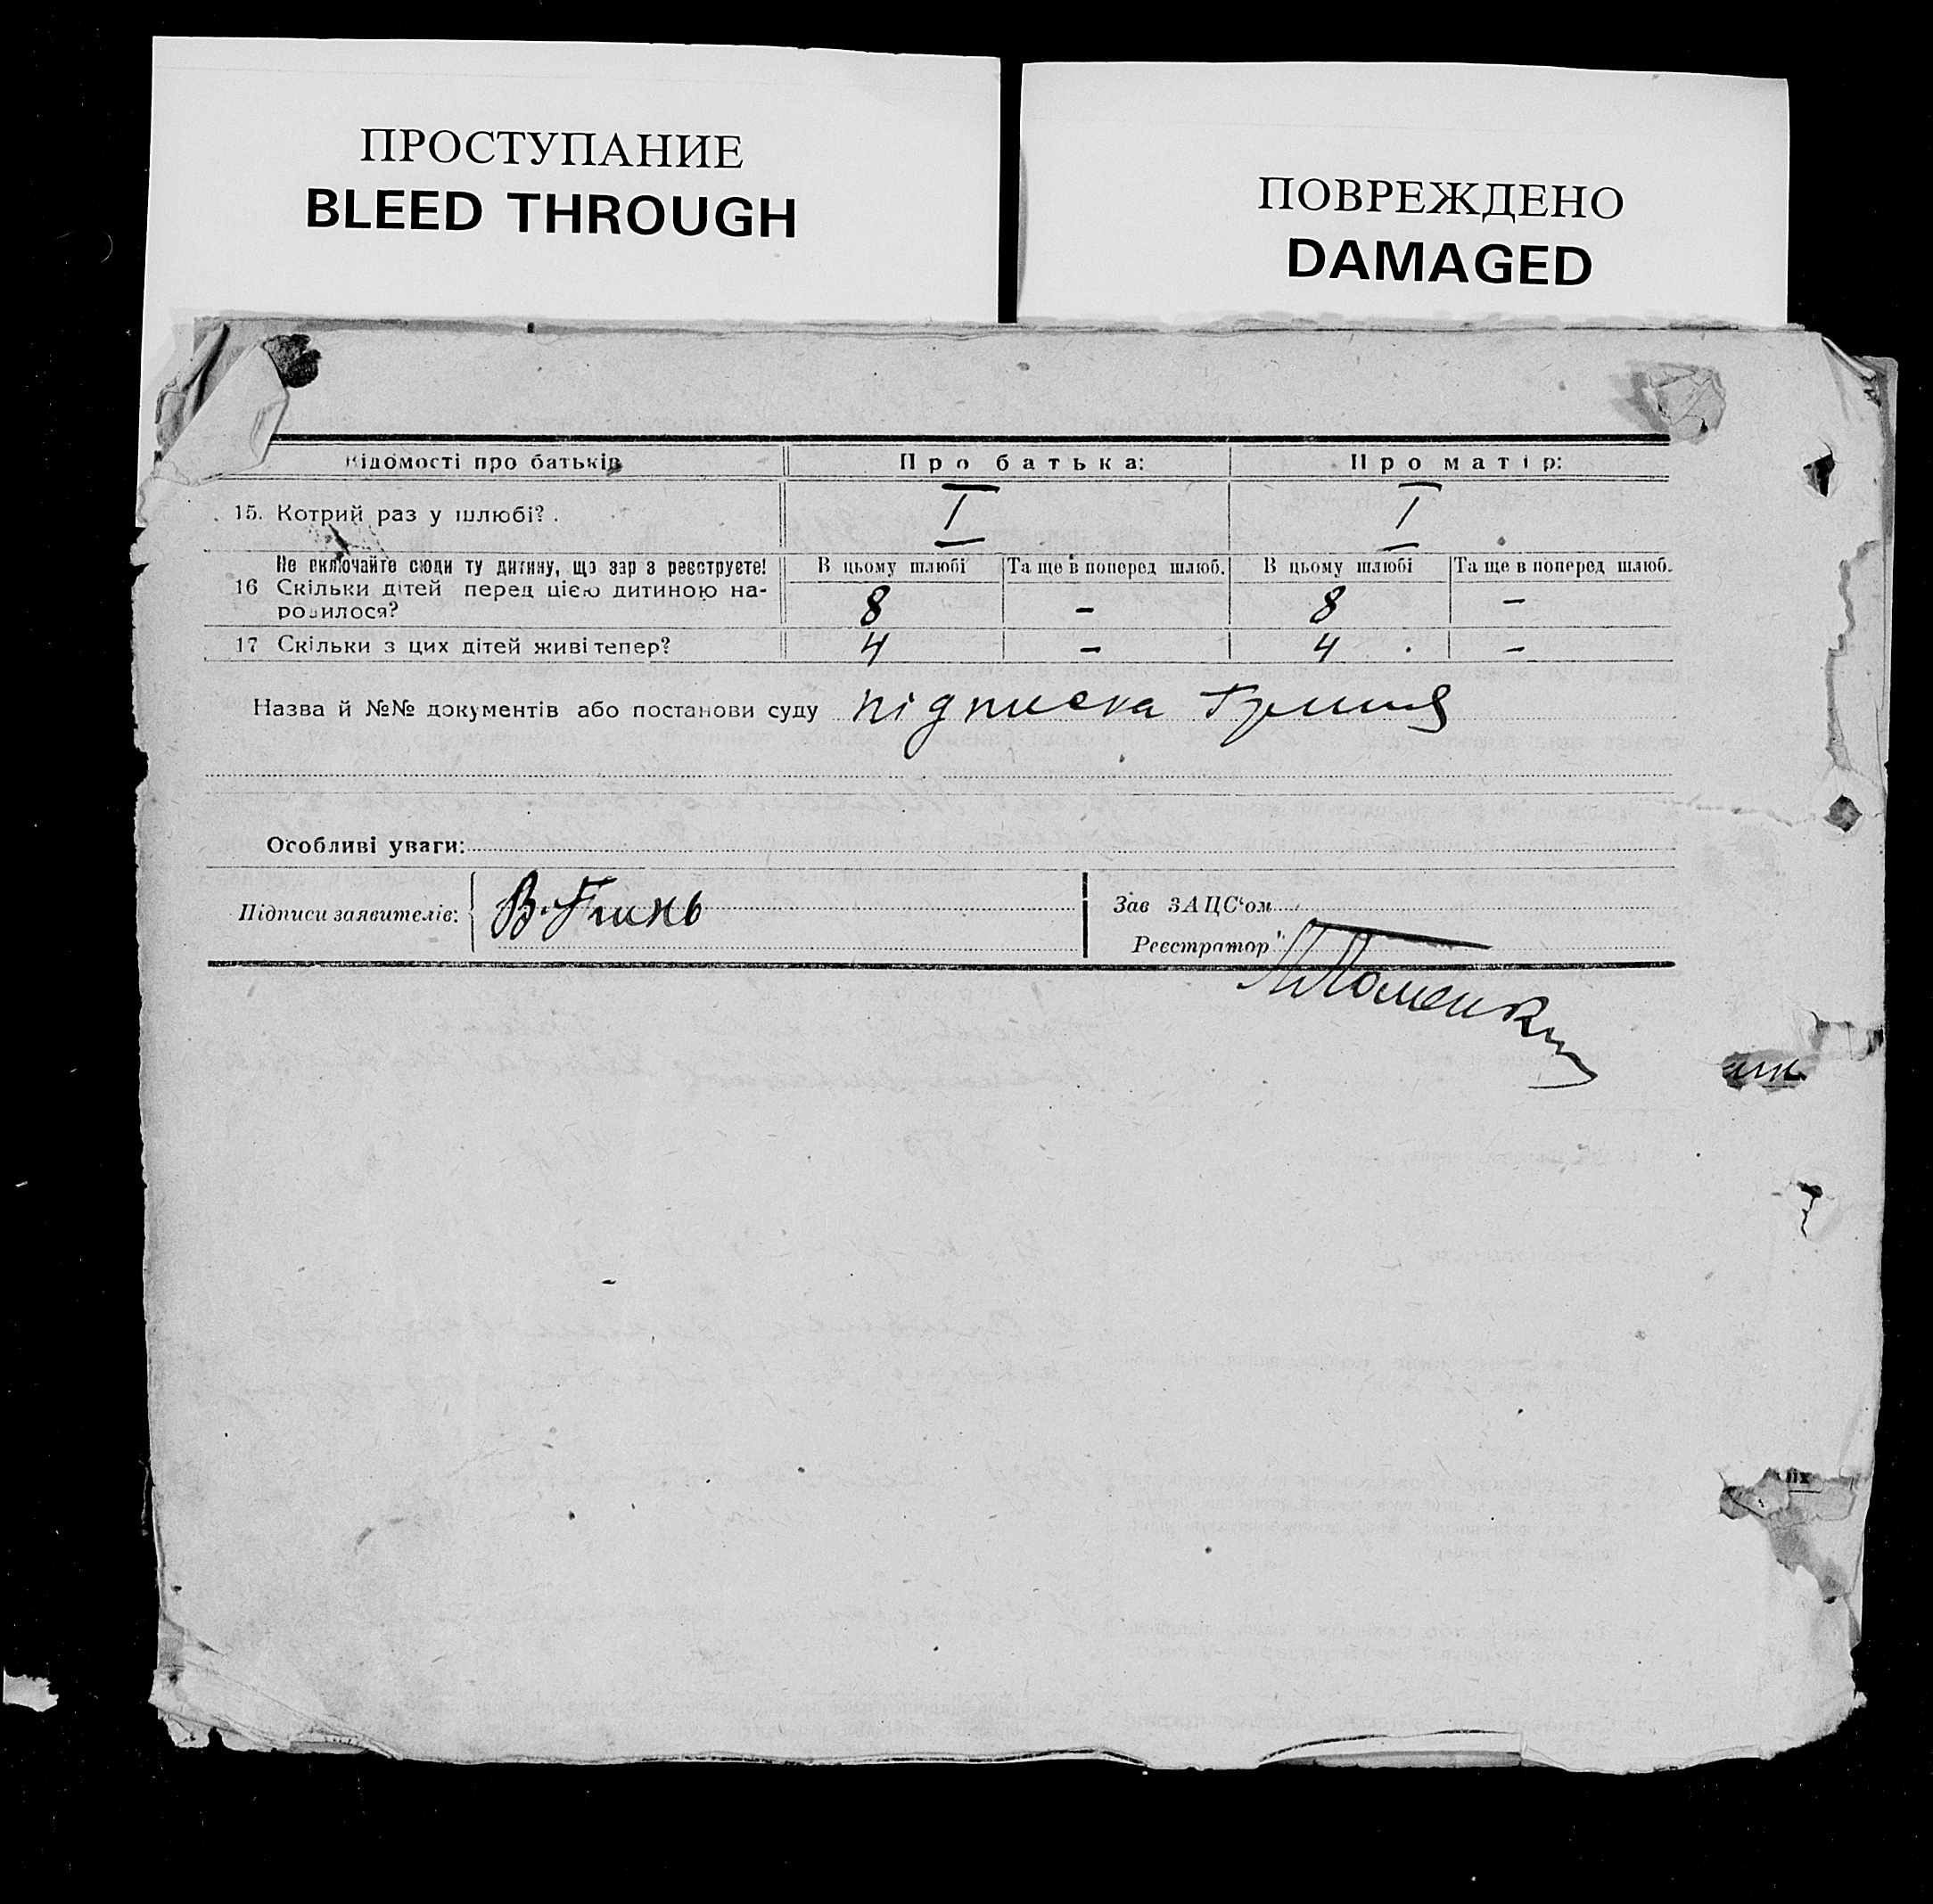 ПРОСТУПАНИЕ
BLEED THROUGH
ПОВРЕЖДЕНО
DAMAGED
Відомості про батьків
Про батька:
Про матір:
15. Котрий раз у шлюбі?
I
I
Не включайте сюди ту дитину, що зараз реєструєте!
В цьому шлюбі
Та ще в поперед шлюб.
В цьому шлюбі
Та ще в поперед шлюб.
16 Скільки дітей перед цією дитиною на-
родилося?
8
-
8
-
17 Скільки з цих дітей живі тепер?
4
-
4
-
Назва й №№ документів або постанови суду підписка
Особливі уваги:
Підписи заявителів:
В.
Зав ЗАЦС'ом
Реєстратор